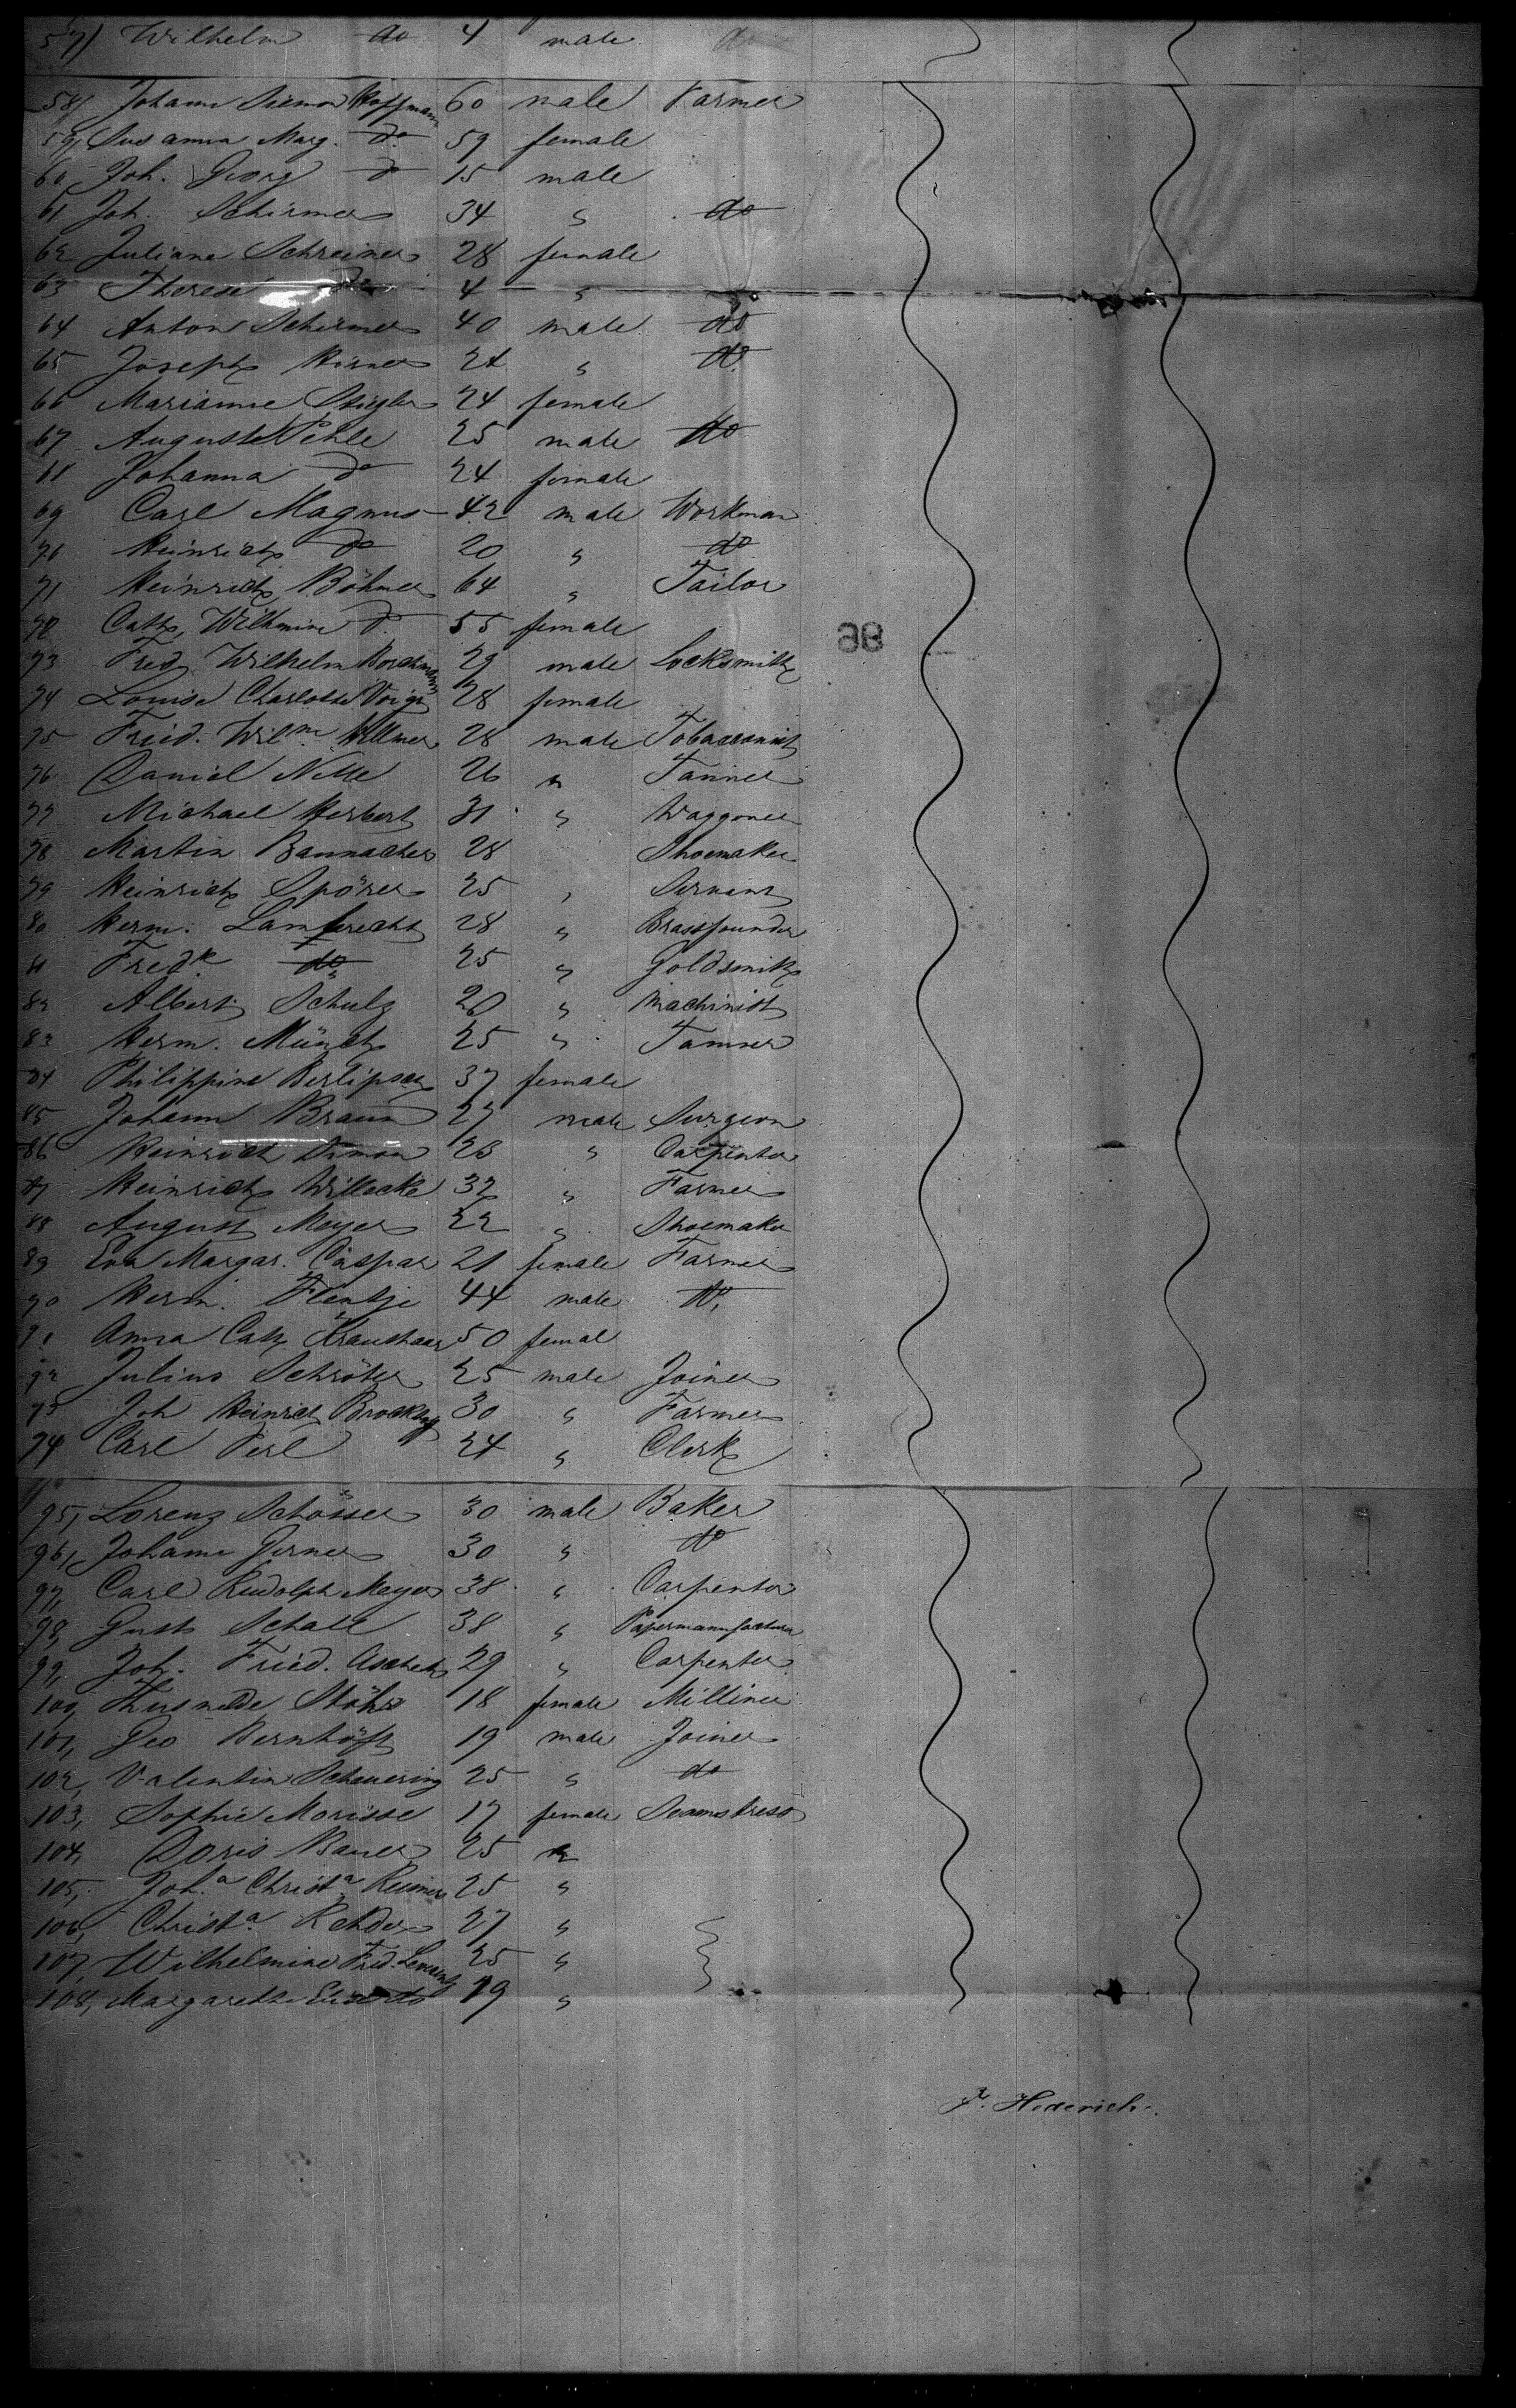 57) Wilhelm do 4 male do
58) Johann Siemon Hoffmann 60 male Farmer
59, Susanna Marg. do 59 female
60, Joh. Georg do 15 male
61 Joh. Schirmer 34 " do
62 Juliane Schreiner 28 female
63 Therese do 4 "
64 Anton Schirmer 40 male do
65 Joseph Hirner 24 " do
66 Marianne Stiegler 24 female
67 August Pehle 25 male do
68 Johanna do 24 female
69 Carl Magnus 42 male Workman
70 Heinrich do 20 " do
71 Heinrich Böhmer 64 " Tailor
72 Cath. Wilhmine do 55 female
73 Fred. Wilhelm Borchmann 29 male Locksmith
74 Louise Charlotte Voigt 28 female
75 Fried. Wilm. Willmer 28 male Tobacconist
76 Daniel Nette 26 " Tanner
77 Michael Herbert 31 " Waggoner
78 Martin Bannacher 28 Shoemaker
79 Heinrich Spörer 25 " Servant
80 Herm. Lambrecht 28 " Brassfounder
81 Fredk. do 25 " Goldsmith
82 Albert Schulz 20 " Machinist
83 Herm. Münch 25 " Tanner
84 Philippine Berlipsch 37 female
85 Johann Braun 27 male Surgeon
86 Heinrich Simon 23 " Carpenter
87 Heinrich Willecke 32 " Farmer
88 August Meyer 22 " Shoemaker
89 Eva Margar. Caspar 21 female Farmer
90 Herm. Flentje 44 male do
91 Anna Cath Kraushaar 50 femal
92 Julius Schröter 25 male Joiner
93 Joh Heinrich 30 " Farmer
94 Carl Perl 24 " Clerk
95, Lorenz Schösser 30 male Baker
96, Johann Gerner 30 " do
97, Carl Rudolph Meyer 38 " Carpenter
98, Gust. Schall 38 " Papermanufacturer
99, Joh. Fried. 29 " Carpenter
100, Thusnelde Stöhr 18 female Milliner
101, Geo Bernhöft 19 male Joiner
102, Valentin Scheuering 25 " do
103, Sophie Morisse 17 female Seamstress
104, Doris Bauer 25 "
105, Joha. Christa. Reimer 25 "
106, Christa. Rehder 27 "
107, Wilhelmine Fried. 25 "
108, Margarethe 19 "
98
F. Hederich.